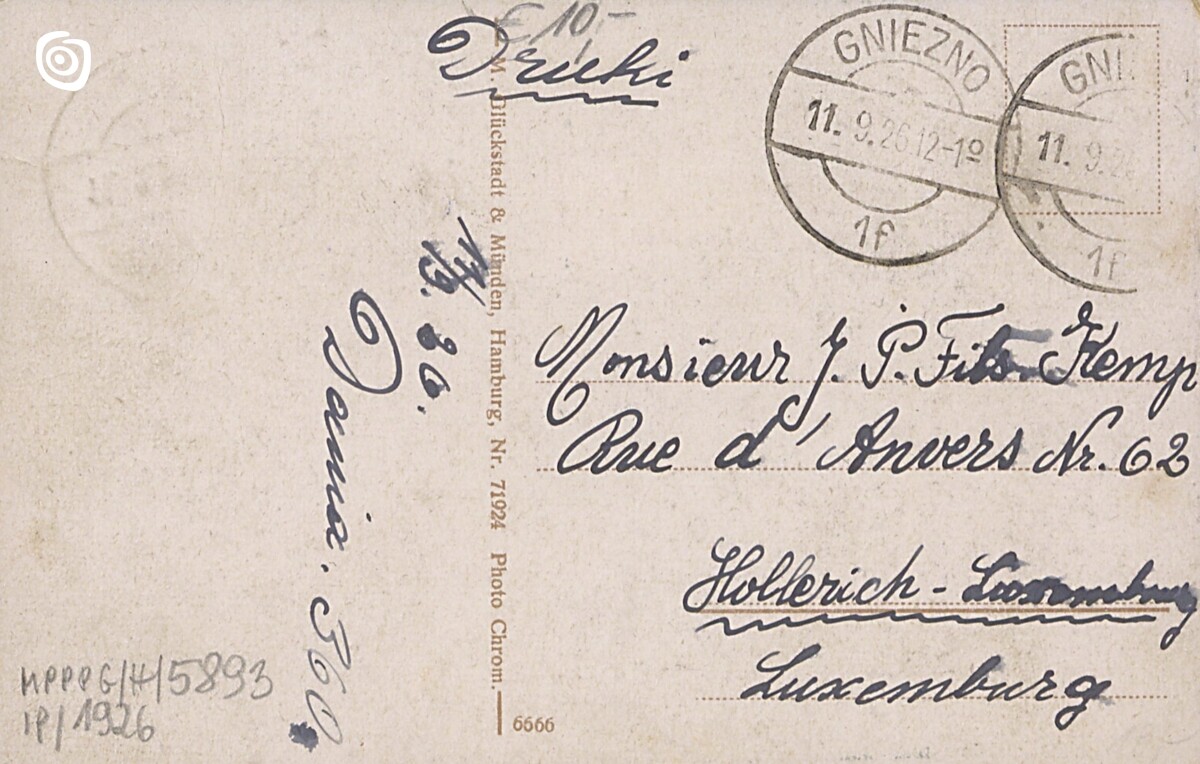 £ 10-
Druki
GNIEZNO
11. 9.26 12-1º
1f
GNI
11. 9.26
1f
11/9. 26.
Dania. 360.
M. Glückstadt & Münden, Hamburg, Nr. 71924 Photo Chrom.
6666
Monsieur J. P. Fits-Kemp
Rue d'Anvers Nr. 62
Hollerich - Luxemburg
Luxemburg
MPPP G/H/5893
IP/1926